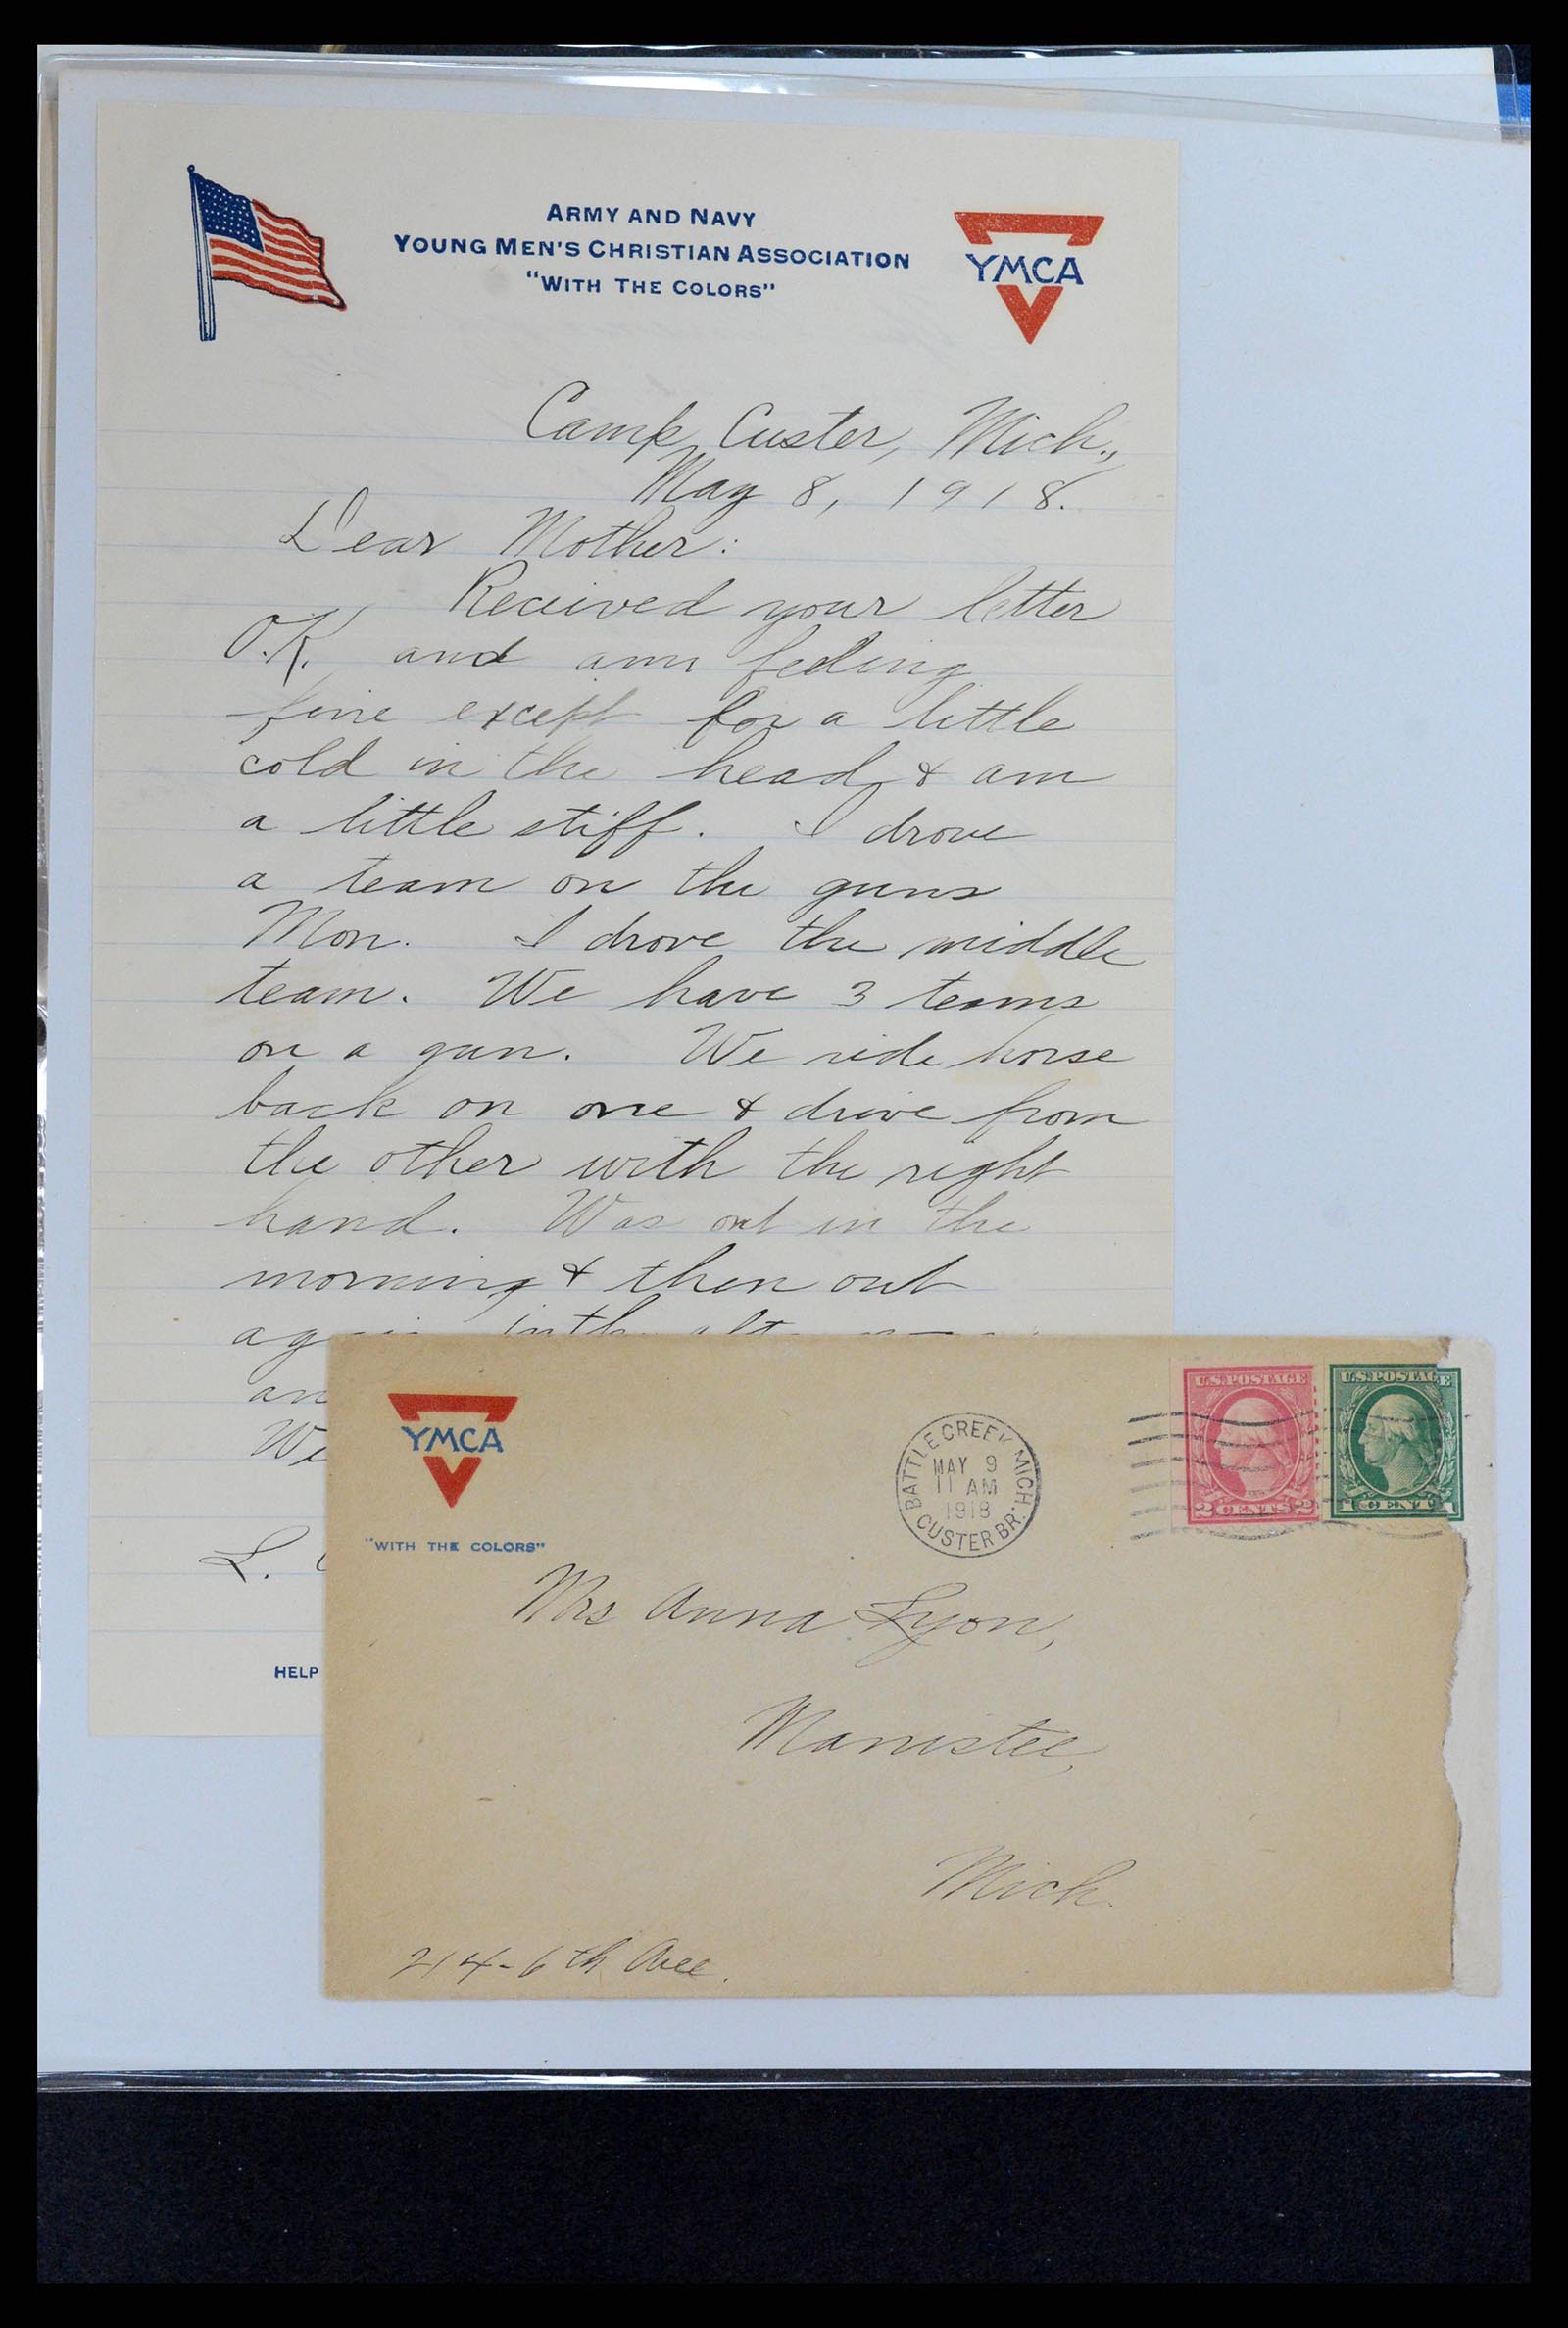 ARMY AND NAVY
YOUNG MEN'S CHRISTIAN ASSOCIATION
"WITH THE COLORS"
YMCA
Camp Custer, Mich.,
May 8, 1918.
Dear Mother:
Received your letter
O.K. and am feeling
fine except for a little
cold in the head & am
a little stiff. I drove
a team on the guns
Mon. I drove the middle
team. We have 3 teams
on a gun. We ride horse
back on one & drive from
the other with the right
hand. Was out in the
morning & then out
We
L.
HELP
YMCA
"WITH THE COLORS"
BATTLE CREEK MICH.
MAY 9
11 AM
1918
CUSTER BR.
U.S. POSTAGE
2 CENTS 2
U.S. POSTAGE
1 CENT 1
Mrs Anna Lyon,
Manistee,
Mich
214-6th Ave.